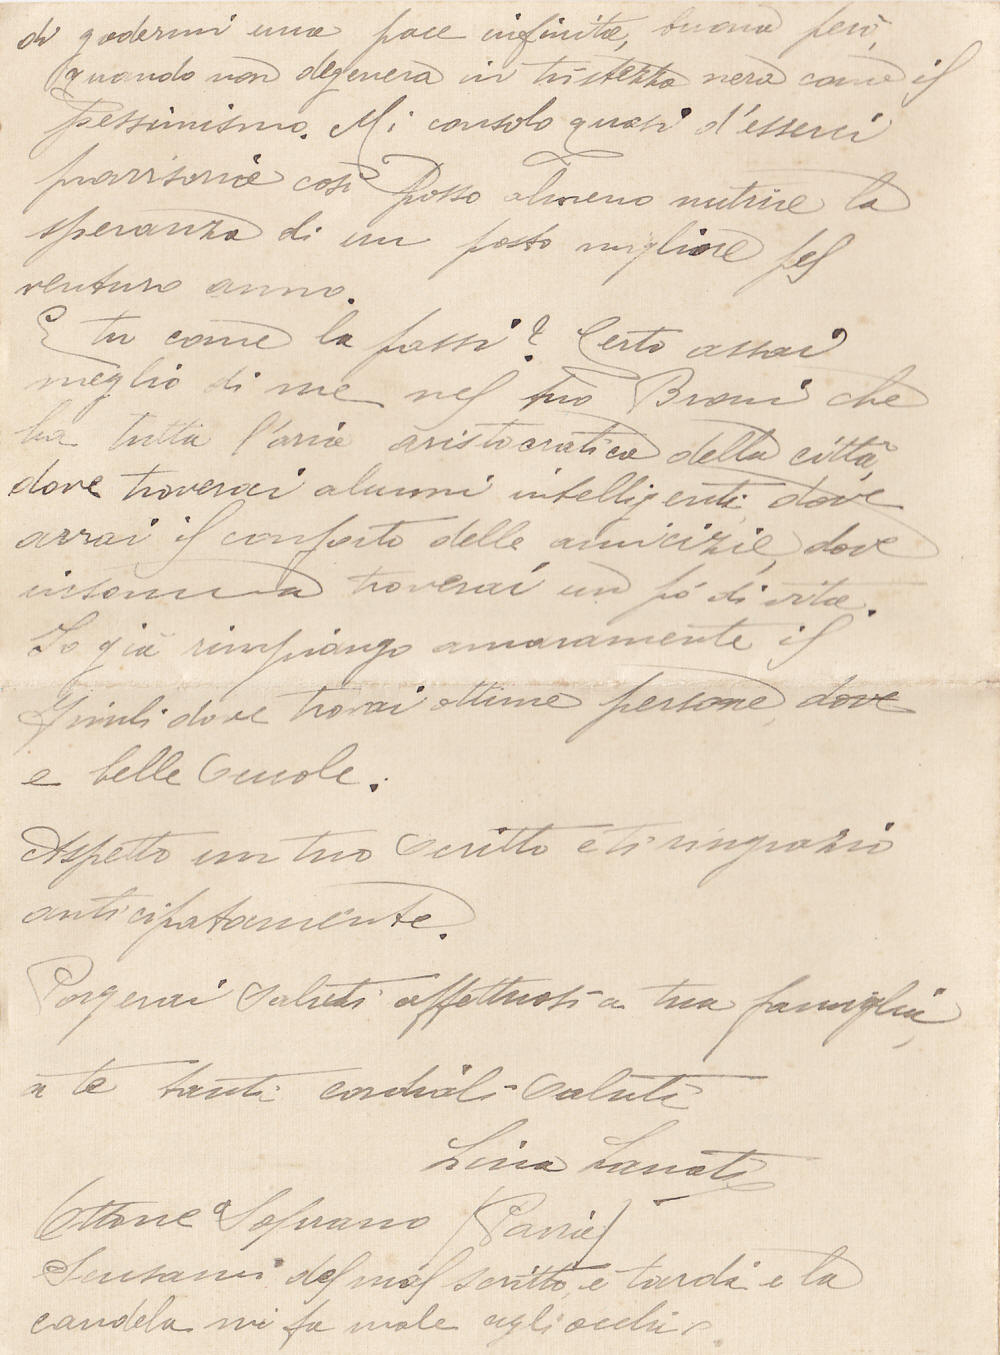 di godermi una pace infinita, buona però,
quando non degenera in tristezza nera come il
pessimismo. Mi consolo quasi d'esserci
provvisoria così posso almeno nutrire la
speranza di un posto migliore pel
venturo anno.
E tu come la passi? Certo assai
meglio di me nel tuo Broni che
ha tutta l'aria aristocratica della città,
dove troverai alunni intelligenti, dove
avrai il conforto delle amicizie, dove
insomma troverai un pó di vita.
Io già rimpiango amaramente il
dove trovai ottime persone, dove
e belle scuole.
Aspetto un tuo scritto e ti ringrazio
anticipatamente.
Porgerai saluti affettuosi a tua famiglia,
a te tanti cordiali saluti
Lina
Ottone Soprano (Pavia)
Scusami del mal scritto, è tardi e la
candela mi fa male agli occhi.